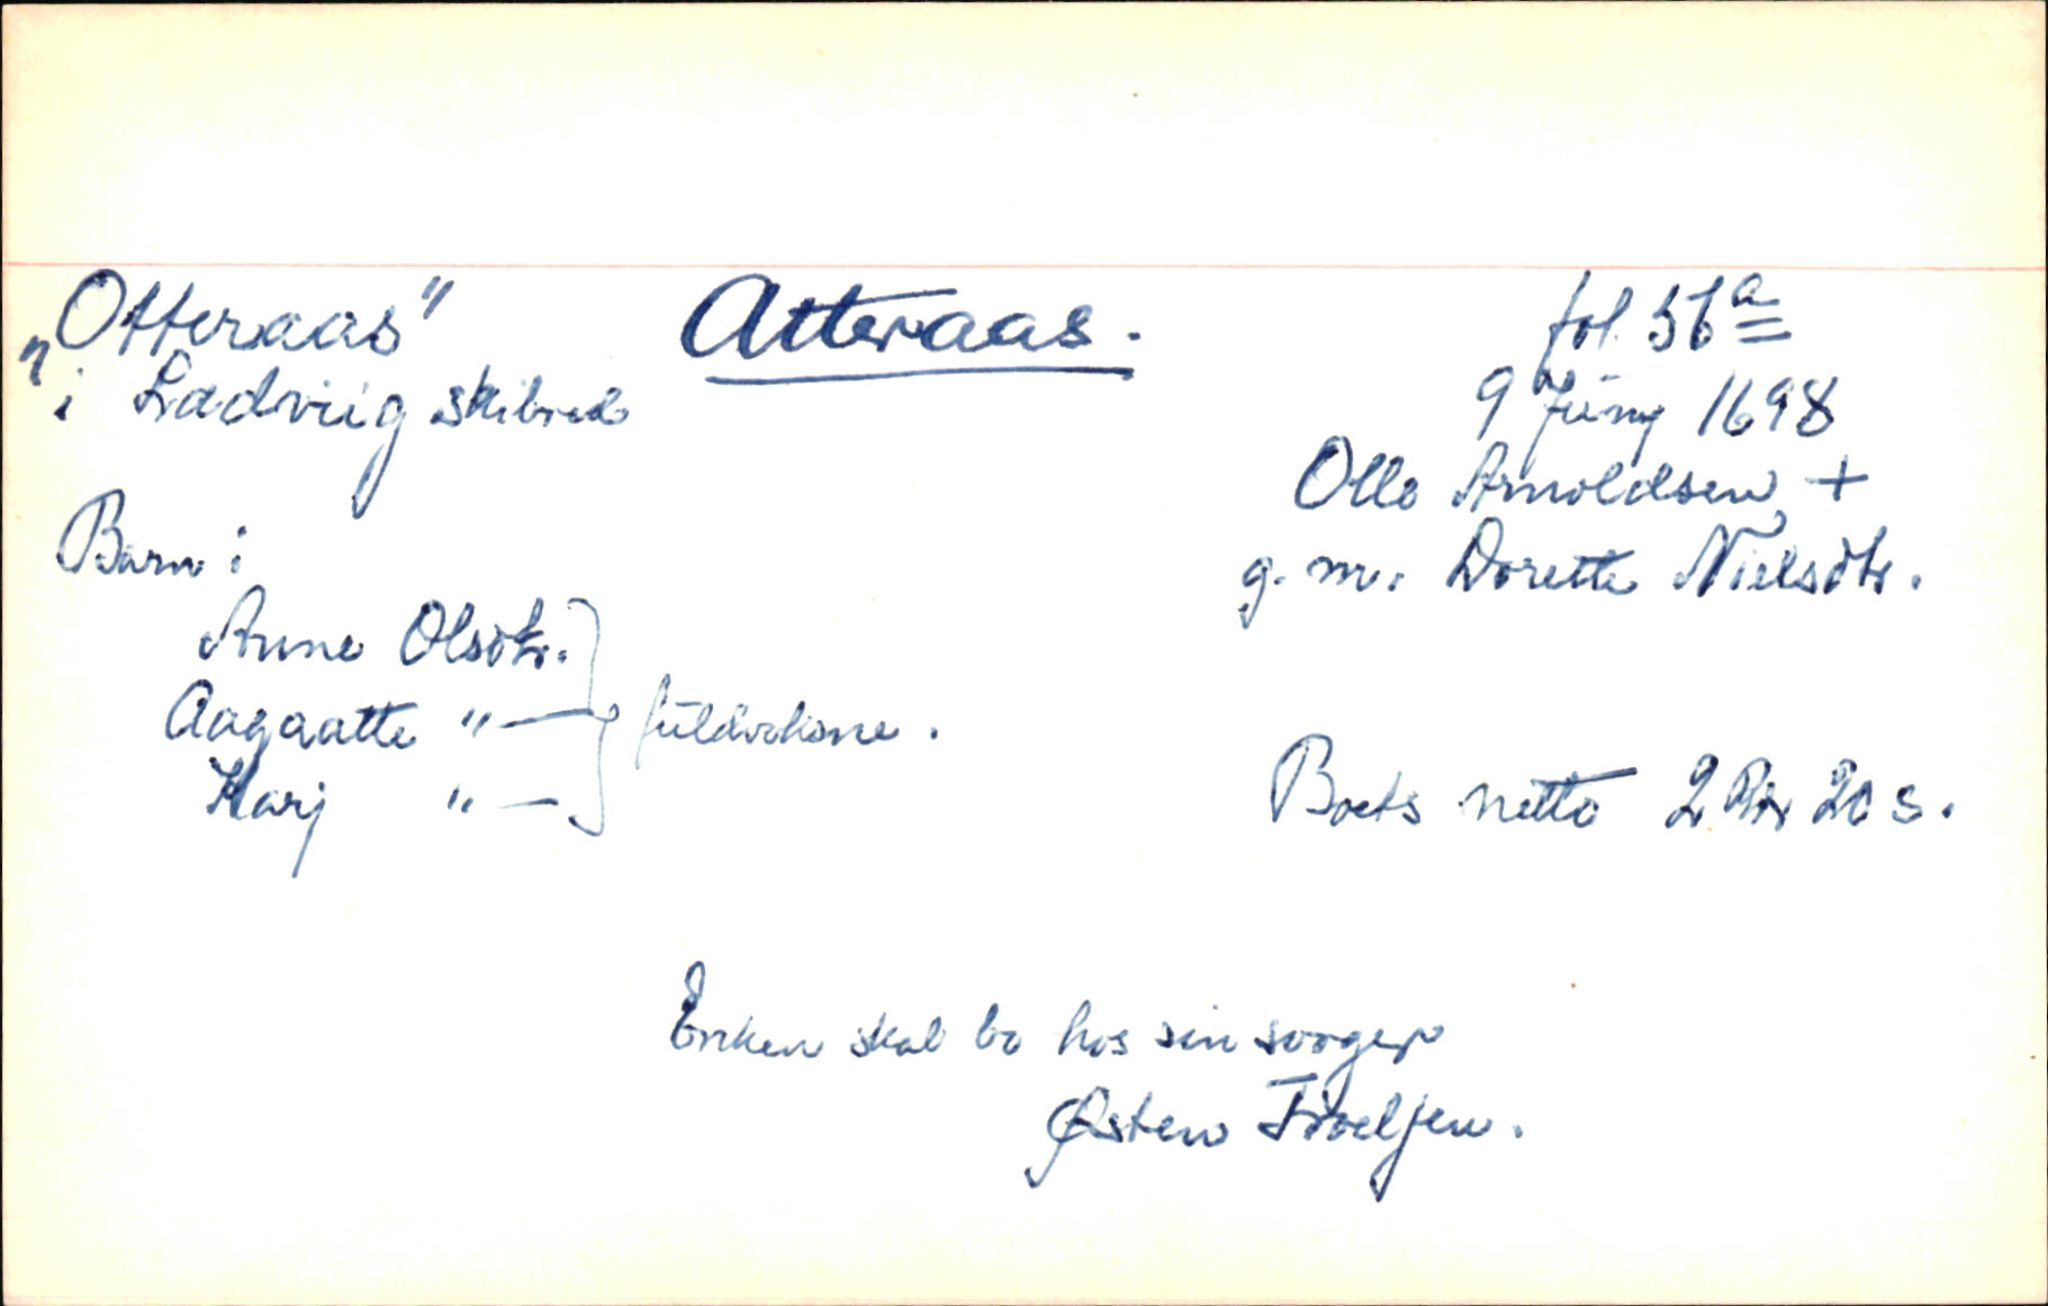 „Otteraas" Atteraas. fol. 56a
i Ladviig skibred 9 Juny 1698
Olle Arnoldsen +
g. m. Dorette Nielsdtr.
Barn:
Anne Olsdtr.
Aagaatte " — fuldvoksne.
Marj " —
Boets netto 2 Rdr 20 s.
Enken skal bo hos sin svoger
Østen Troeljen.